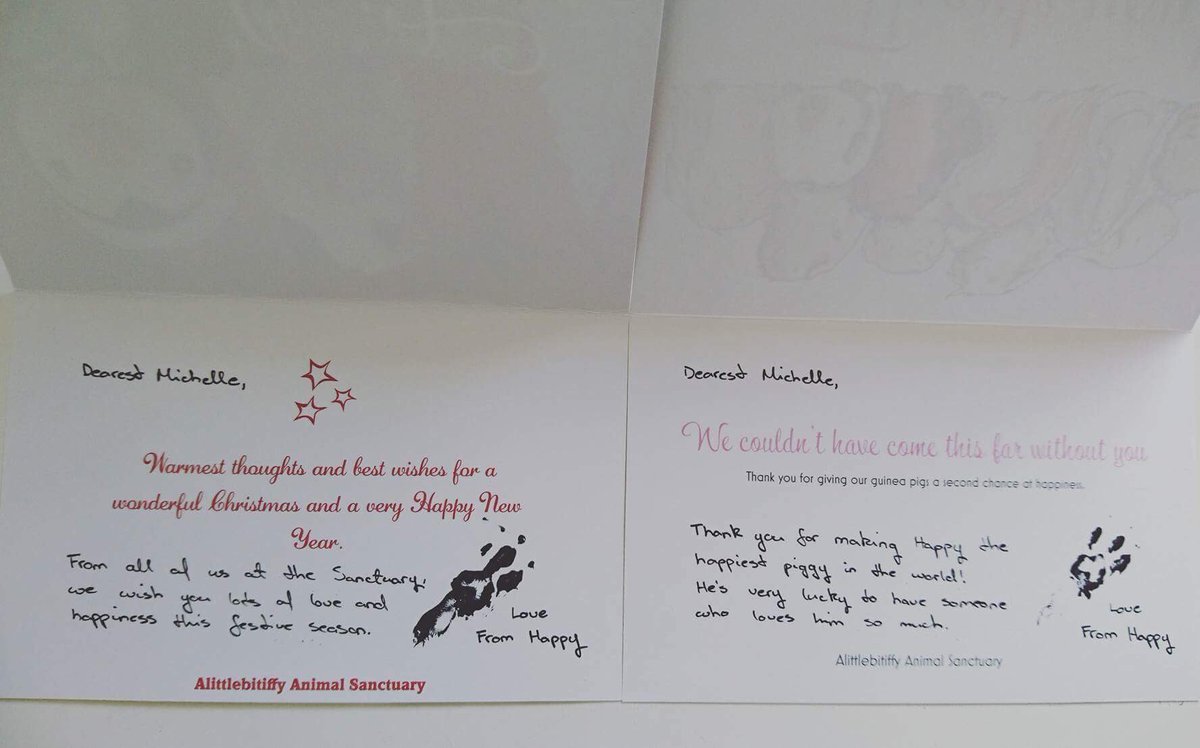 Dearest Michelle,
Warmest thoughts and best wishes for a
wonderful Christmas and a very Happy New
Year.
From all of us at the Sanctuary,
we wish you lots of love and
happiness this festive season.
Love
From Happy
Alittlebitiffy Animal Sanctuary
Dearest Michelle,
We couldn't have come this far without you
Thank you for giving our guinea pigs a second chance at happiness.
Thank you for making Happy the
happiest piggy in the world!
He's very lucky to have someone
who loves him so much.
Love
From Happy
Alittlebitiffy Animal Sanctuary